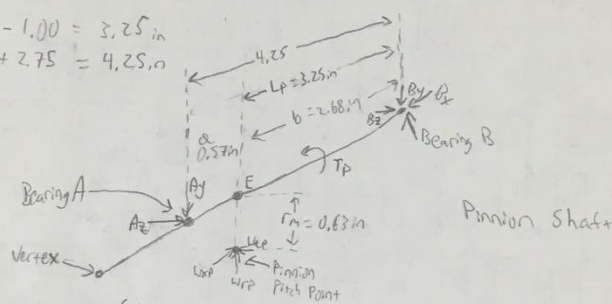 - 1.00 = 3.25 in
+ 2.75 = 4.25in
4.25
Lp=3.25in
b=2.68in
a
0.57in
By
Bx
Bz
Bearing B
Tp
Bearing A
Ay
E
Az
rm=0.63in
Pinnion Shaft
Vertex
Wxp
Wrp
Pinnion
Pitch Point